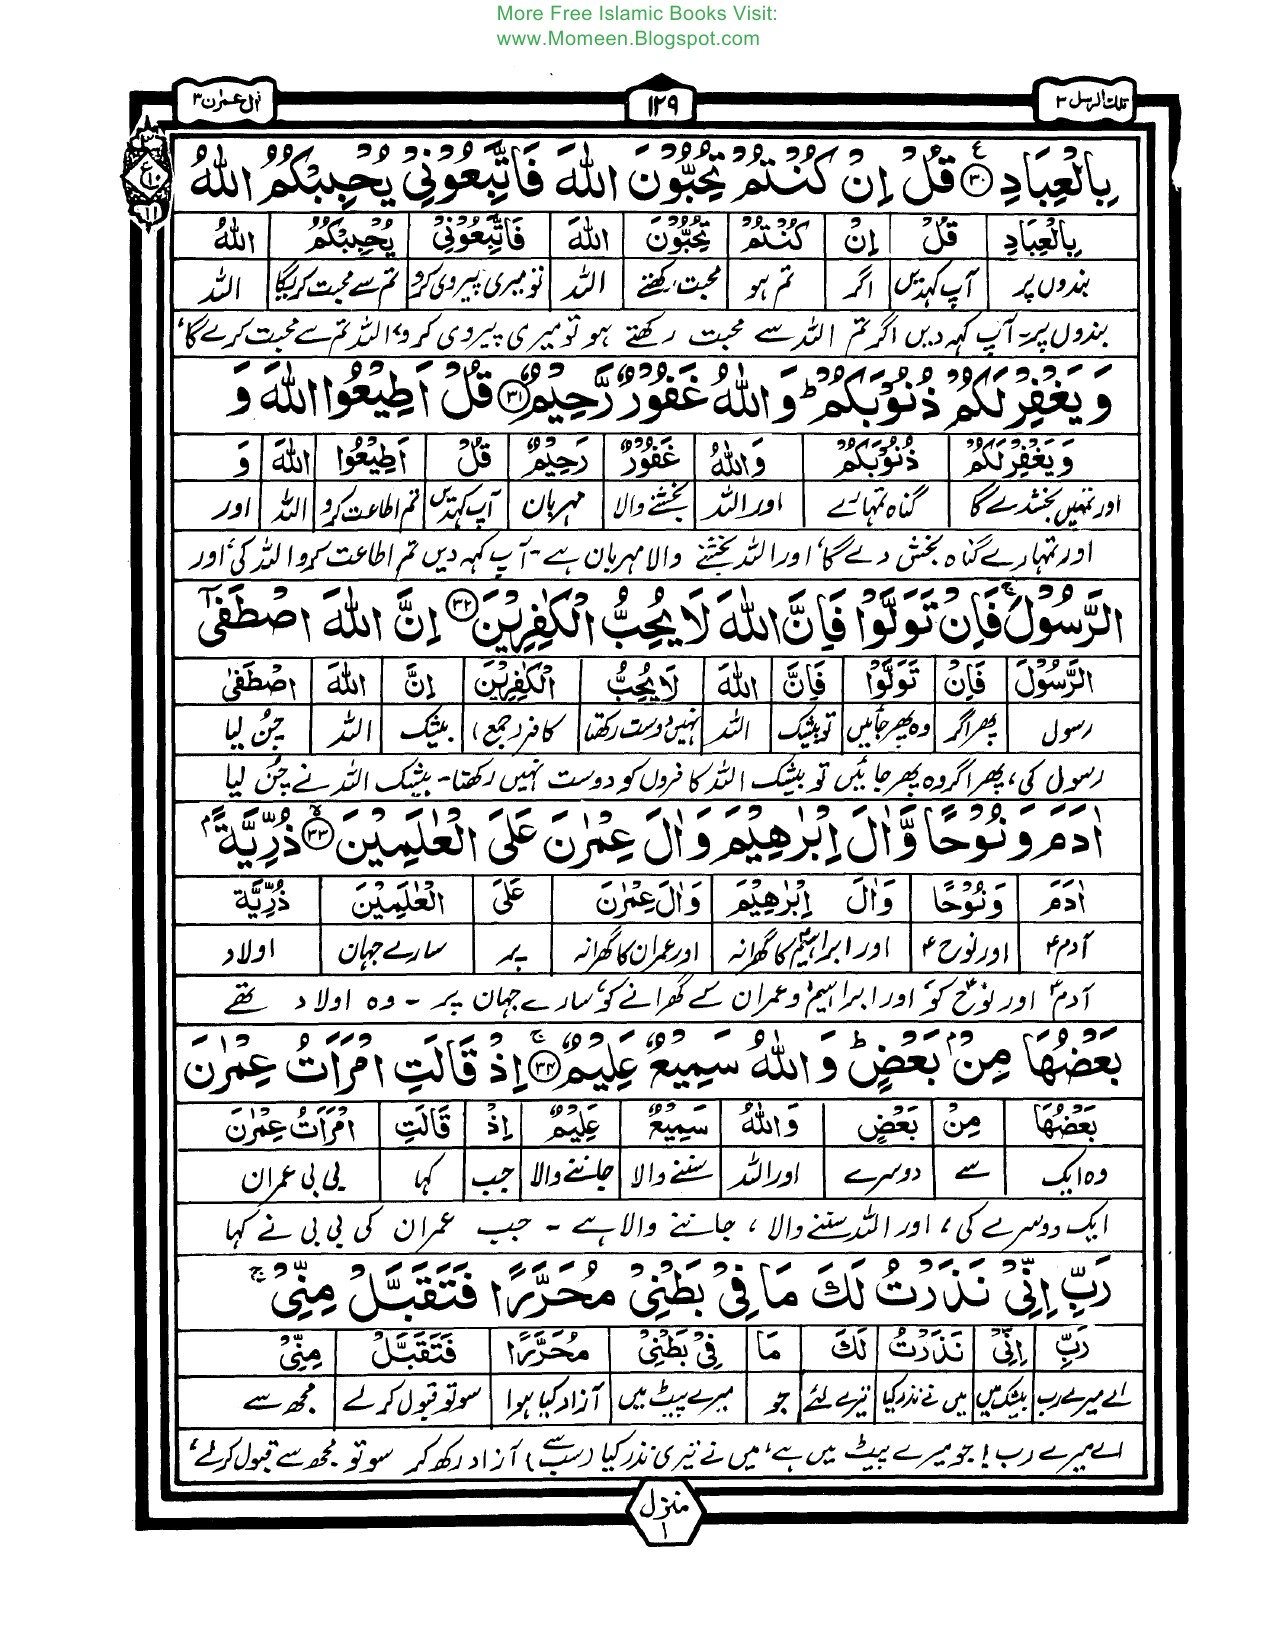 More Free Islamic Books Visit:
www.Momeen.Blogspot.com
تلك الرسل ٣
١٢٩
اٰل عمرٰن ٣
ع
١٠
١١
بِالْعِبَادِ ﴿٣٠﴾ قُلْ اِنْ كُنْتُمْ تُحِبُّوْنَ اللّٰهَ فَاتَّبِعُوْنِيْ يُحْبِبْكُمُ اللّٰهُ
بِالْعِبَادِ قُلْ اِنْ كُنْتُمْ تُحِبُّوْنَ اللّٰهَ فَاتَّبِعُوْنِيْ يُحْبِبْكُمُ اللّٰهُ
بندوں پر آپ کہدیں اگر تم ہو محبت رکھتے اللہ تو میری پیروی کرو تم سے محبت کریگا اللہ
بندوں پر۔ آپ کہہ دیں اگر تم اللہ سے محبت رکھتے ہو تو میری پیروی کرو، اللہ تم سے محبت کرے گا،
وَيَغْفِرْ لَكُمْ ذُنُوْبَكُمْ ؕ وَاللّٰهُ غَفُوْرٌ رَّحِيْمٌ ﴿٣١﴾ قُلْ اَطِيْعُوا اللّٰهَ وَ
وَيَغْفِرْ لَكُمْ ذُنُوْبَكُمْ وَاللّٰهُ غَفُوْرٌ رَحِيْمٌ قُلْ اَطِيْعُوا اللّٰهَ وَ
اور تمہیں بخشدے گا گناہ تمہارے اور اللہ بخشنے والا مہربان آپ کہدیں تم اطاعت کرو اللہ اور
اور تمہارے گناہ بخش دے گا، اور اللہ بخشنے والا مہربان ہے۔ آپ کہہ دیں تم اطاعت کرو اللہ کی، اور
الرَّسُوْلَ ۚ فَاِنْ تَوَلَّوْا فَاِنَّ اللّٰهَ لَا يُحِبُّ الْكٰفِرِيْنَ ﴿٣٢﴾ اِنَّ اللّٰهَ اصْطَفٰۤى
الرَّسُوْلَ فَاِنْ تَوَلَّوْا فَاِنَّ اللّٰهَ لَا يُحِبُّ الْكٰفِرِيْنَ اِنَّ اللّٰهَ اصْطَفٰى
رسول پھر اگر وہ پھر جائیں تو بیشک اللہ نہیں دوست رکھتا کافر (جمع) بیشک اللہ چُن لیا
رسول کی، پھر اگر وہ پھر جائیں تو بیشک اللہ کافروں کو دوست نہیں رکھتا۔ بیشک اللہ نے چُن لیا
اٰدَمَ وَنُوْحًا وَّاٰلَ اِبْرٰهِيْمَ وَاٰلَ عِمْرٰنَ عَلَى الْعٰلَمِيْنَ ﴿٣٣﴾ ۙ ذُرِّيَّةًۢ
اٰدَمَ وَنُوْحًا وَاٰلَ اِبْرٰهِيْمَ وَاٰلَ عِمْرٰنَ عَلَى الْعٰلَمِيْنَ ذُرِّيَّةً
آدم ؑ اور نوح ؑ اور ابراہیم ؑ کا گھرانہ اور عمران کا گھرانہ پر سارے جہان اولاد
آدم ؑ اور نوح ؑ کو، اور ابراہیم ؑ و عمران کے گھرانے کو سارے جہان پر۔ وہ اولاد تھے
بَعْضُهَا مِنْۢ بَعْضٍ ؕ وَاللّٰهُ سَمِيْعٌ عَلِيْمٌ ﴿٣٤﴾ ۚ اِذْ قَالَتِ امْرَاَتُ عِمْرٰنَ
بَعْضُهَا مِنْ بَعْضٍ وَاللّٰهُ سَمِيْعٌ عَلِيْمٌ اِذْ قَالَتِ امْرَاَتُ عِمْرٰنَ
وہ ایک سے دوسرے اور اللہ سننے والا جاننے والا جب کہا بی بی عمران
ایک دوسرے کی، اور اللہ سننے والا، جاننے والا ہے۔ جب عمران کی بی بی نے کہا
رَبِّ اِنِّيْ نَذَرْتُ لَكَ مَا فِيْ بَطْنِيْ مُحَرَّرًا فَتَقَبَّلْ مِنِّيْ ۚ
رَبِّ اِنِّيْ نَذَرْتُ لَكَ مَا فِيْ بَطْنِيْ مُحَرَّرًا فَتَقَبَّلْ مِنِّيْ
اے میرے رب بیشک میں میں نے نذر کیا تیرے لئے جو میرے پیٹ میں آزاد کیا ہوا سو تو قبول کر لے مجھ سے
اے میرے رب! جو میرے پیٹ میں ہے، میں نے تیری نذر کیا (سب سے) آزاد رکھ کر سو تو مجھ سے قبول کر لے،
منزل
١